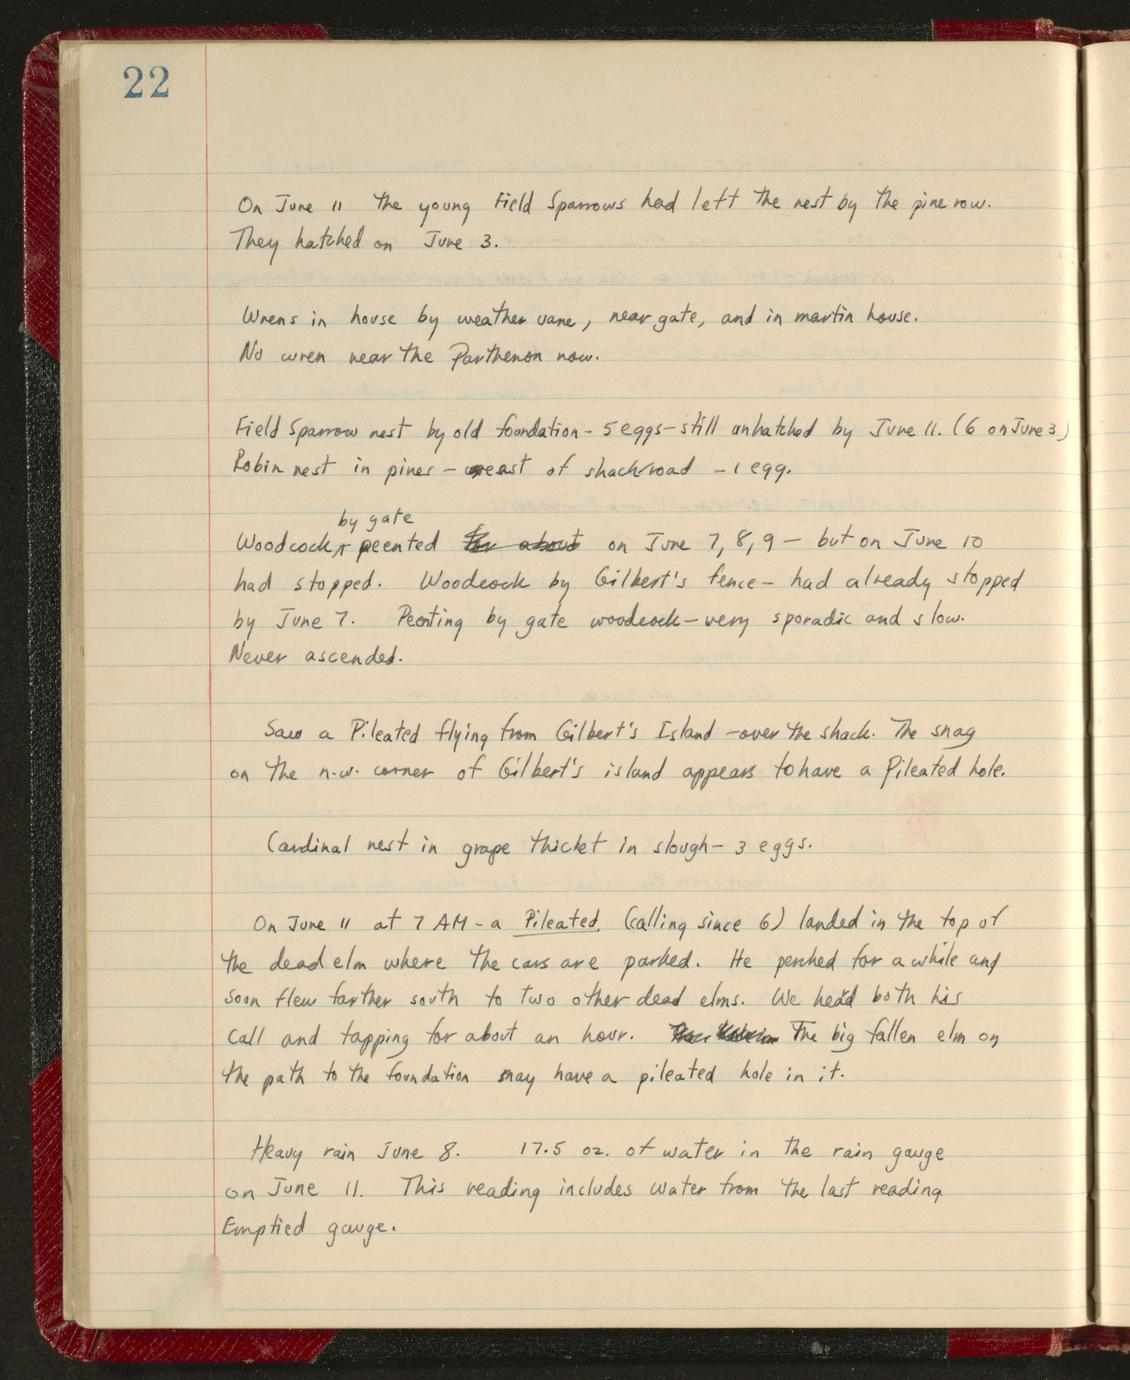 22
On June 11 the young Field Sparrows had left the nest by the pine row.
They hatched on June 3.
Wrens in house by weather vane, near gate, and in martin house.
No wren near the Parthenon now.
Field Sparrow nest by old foundation - 5 eggs - still unhatched by June 11. (6 on June 3)
Robin nest in pines - east of shack road - 1 egg.
by gate
Woodcock peented for about on June 7, 8, 9 - but on June 10
had stopped. Woodcock by Gilbert's fence - had already stopped
by June 7. Peenting by gate woodcock - very sporadic and slow.
Never ascended.
Saw a Pileated flying from Gilbert's Island - over the shack. The snag
on the n.w. corner of Gilbert's island appears to have a Pileated hole.
Cardinal nest in grape thicket in slough - 3 eggs.
On June 11 at 7 AM - a Pileated (calling since 6) landed in the top of
the dead elm where the cars are parked. He perched for a while and
soon flew farther south to two other dead elms. We heard both his
call and tapping for about an hour. The big fallen elm on
the path to the foundation may have a pileated hole in it.
Heavy rain June 8. 17.5 oz. of water in the rain gauge
on June 11. This reading includes water from the last reading
Emptied gauge.